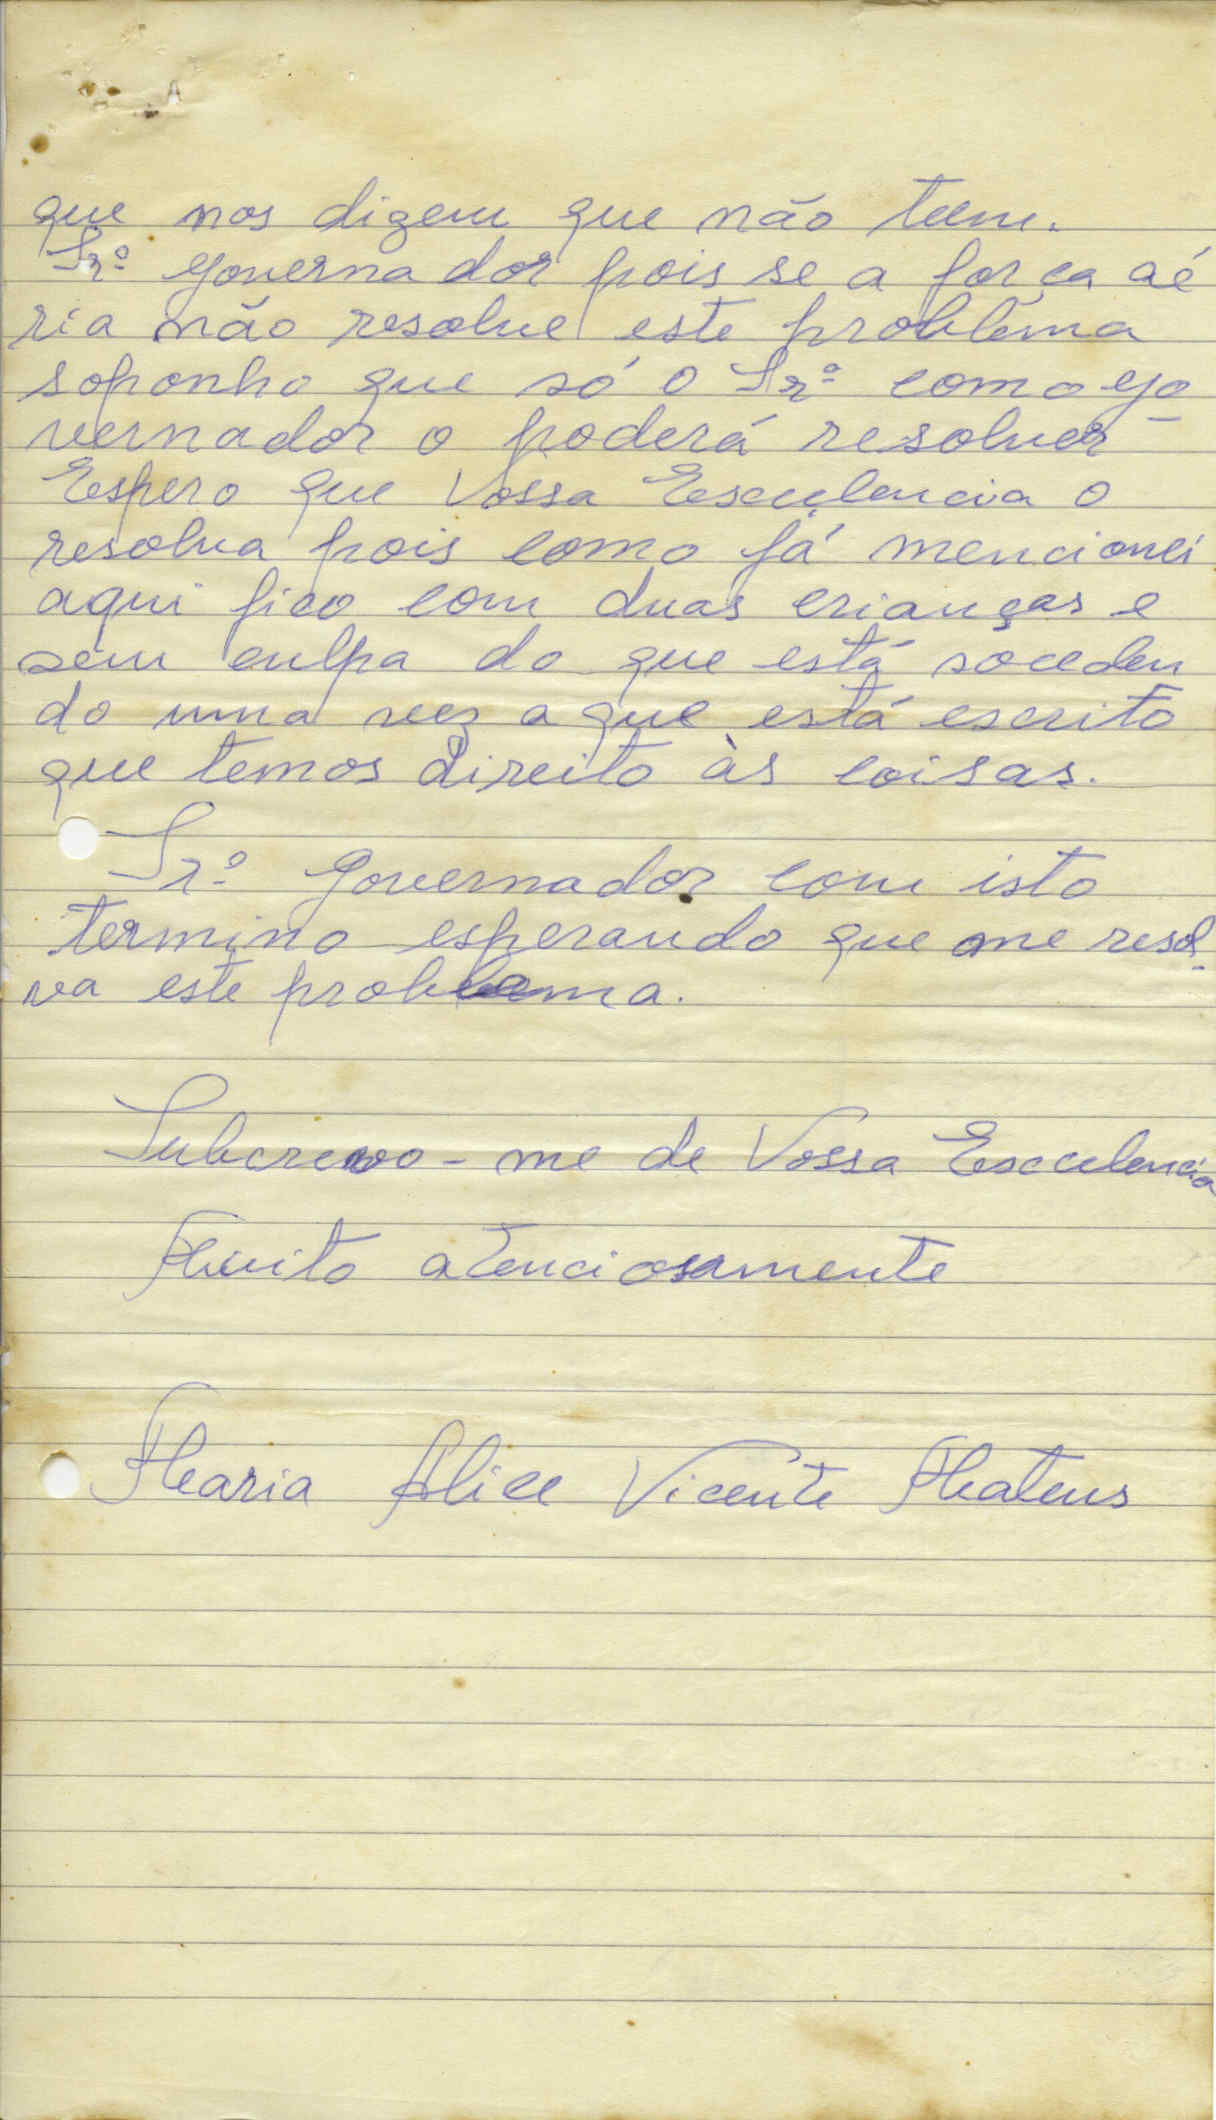 que nos dizem que não teem.
Srº governador pois se a força aé
ria não resolve este problema
soponho que só o Srº como go
vernador o poderá resolver
Espero que Vossa Esculencia o
resolva pois como já mencionei
aqui fico com duas crianças e
sem culpa do que está soceden
do uma vez a que está escrito
que temos direito às coisas.
Srº governador com isto
termino esperando que me resol-
va este problema.
Subcrevo-me de Vossa Esculencia
Muito atenciosamente
Maria Alice Vicente Mateus